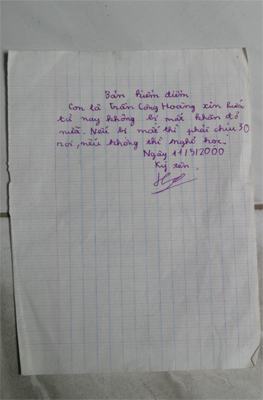 Bản kiểm điểm
Con là Trần Công Hoàng xin hứa
từ nay không bị mất khăn đỏ
nữa. Nếu bị mất thì phải chịu 30
roi, nếu không thì nghỉ học.
Ngày 11/9/2000
Ký tên